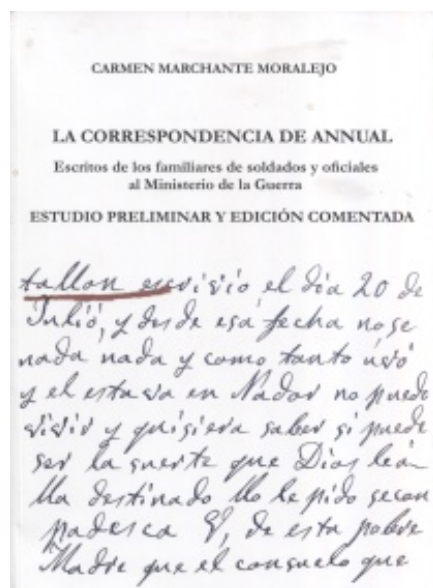 CARMEN MARCHANTE MORALEJO
LA CORRESPONDENCIA DE ANNUAL
Escritos de los familiares de soldados y oficiales
al Ministerio de la Guerra
ESTUDIO PRELIMINAR Y EDICIÓN COMENTADA
tallon escrivió el día 20 de
Julió, y desde esa fecha no se
nada nada y como tanto
y el estava en Nador no puedo
vivir y quisiera saber si puede
ser la suerte que Dios
lla destinado llo le pido se con
padesca V, de esta pobre
Madre que el consuelo que